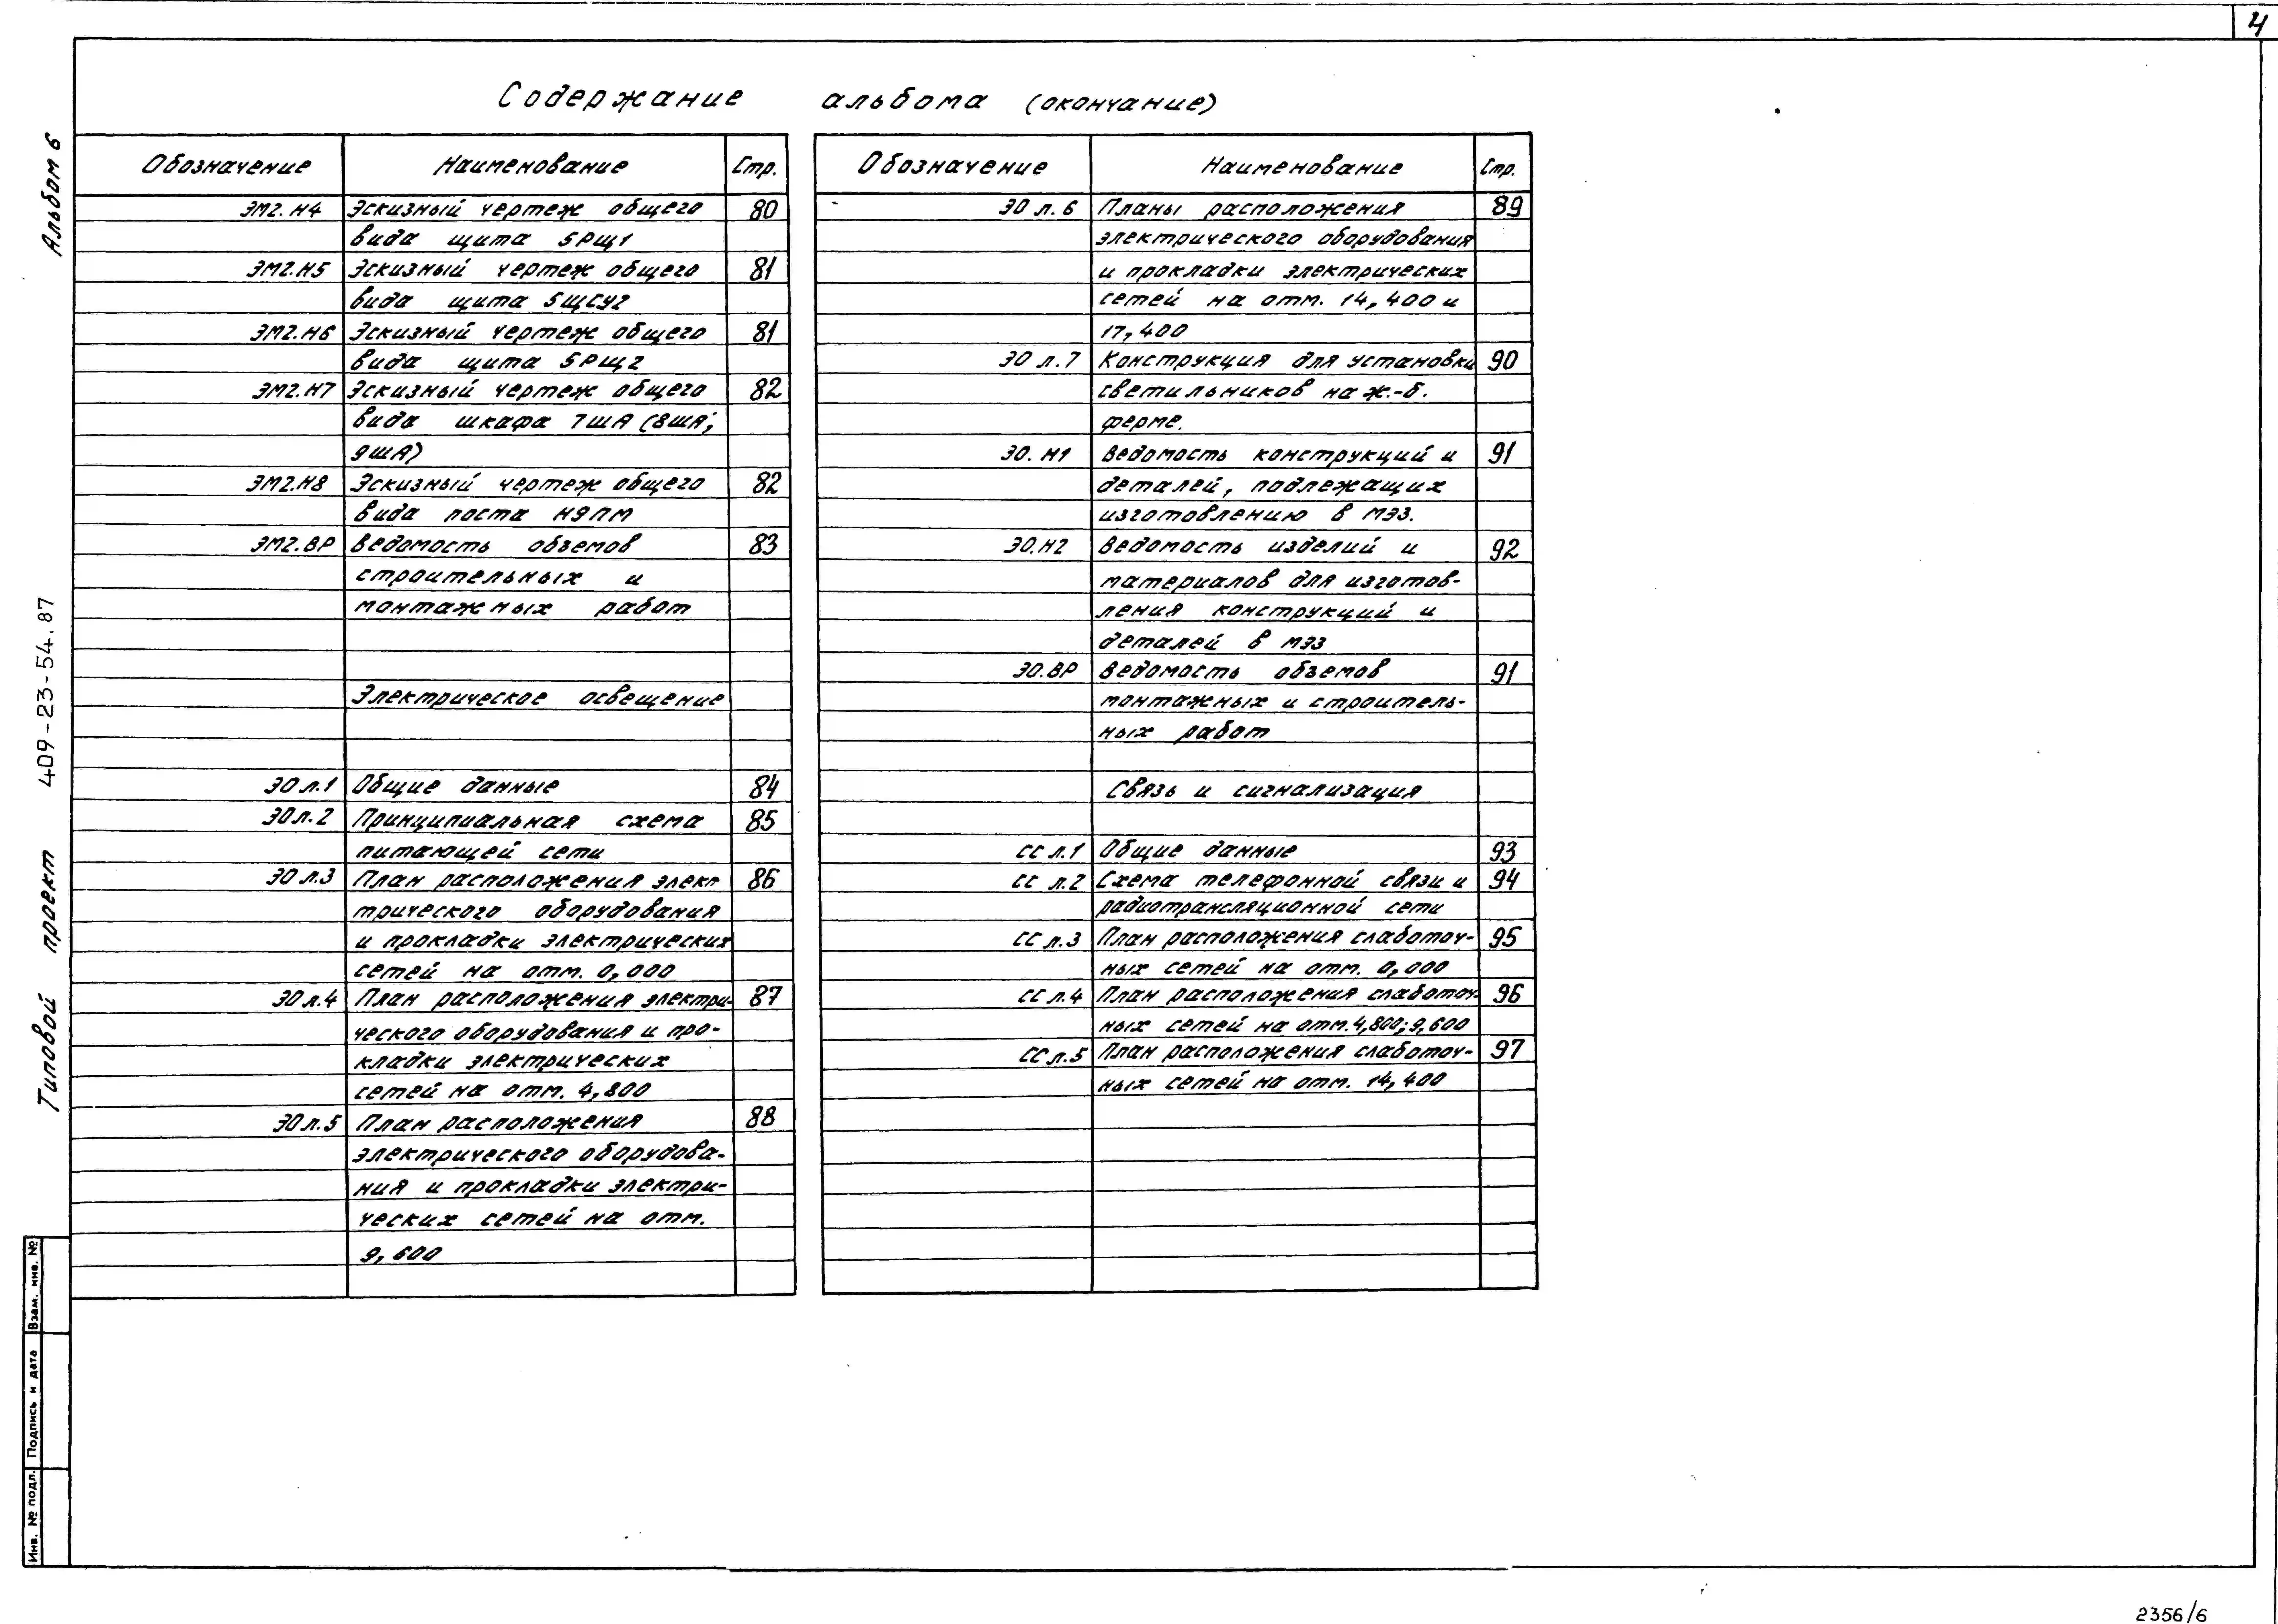 4
Содержание альбома (окончание)
Альбом 6
Типовой проект 409-23-54.87
Обозначение Наименование Стр.
ЭМ2.Н4 Эскизный чертеж общего 80
вида щита 5РЩ1
ЭМ2.Н5 Эскизный чертеж общего 81
вида щита 5ЩСУ2
ЭМ2.Н6 Эскизный чертеж общего 81
вида щита 5РЩ2
ЭМ2.Н7 Эскизный чертеж общего 82
вида шкафа 7ША (8ША;
9ША)
ЭМ2.Н8 Эскизный чертеж общего 82
вида поста Н9ПМ
ЭМ2.ВР Ведомость объемов 83
строительных и
монтажных работ
Электрическое освещение
ЭО л.1 Общие данные 84
ЭО л.2 Принципиальная схема 85
питающей сети
ЭО л.3 План расположения элек- 86
трического оборудования
и прокладки электрических
сетей на отм. 0,000
ЭО л.4 План расположения электри- 87
ческого оборудования и про-
кладки электрических
сетей на отм. 4,800
ЭО л.5 План расположения 88
электрического оборудова-
ния и прокладки электри-
ческих сетей на отм.
9,600
Обозначение Наименование Стр.
ЭО л.6 Планы расположения 89
электрического оборудования
и прокладки электрических
сетей на отм. 14,400 и
17,400
ЭО л.7 Конструкция для установки 90
светильников на ж.-б.
ферме.
ЭО.Н1 Ведомость конструкций и 91
деталей, подлежащих
изготовлению в МЭЗ.
ЭО.Н2 Ведомость изделий и 92
материалов для изготов-
ления конструкций и
деталей в МЭЗ
ЭО.ВР Ведомость объемов 91
монтажных и строитель-
ных работ
Связь и сигнализация
СС л.1 Общие данные 93
СС л.2 Схема телефонной связи и 94
радиотрансляционной сети
СС л.3 План расположения слаботоч- 95
ных сетей на отм. 0,000
СС л.4 План расположения слаботоч- 96
ных сетей на отм. 4,800; 9,600
СС л.5 План расположения слаботоч- 97
ных сетей на отм. 14,400
Взам. инв. №
Подпись и дата
Инв. № подл.
2356/6